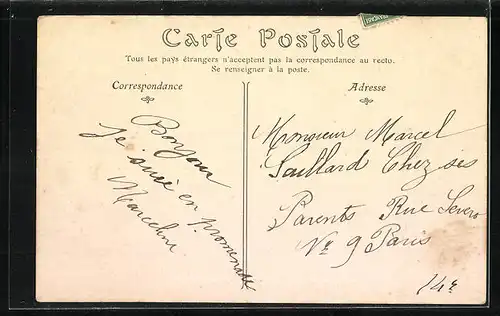 Carte Postale
Tous les pays étrangers n'acceptent pas la correspondance au recto.
Se renseigner à la poste.
Correspondance
Adresse
Bonjour
Je suis en promenade
Marcelin
Monsieur Marcel
Saillard Chez ses
Parents Rue Severo
Nº 9 Paris
14e